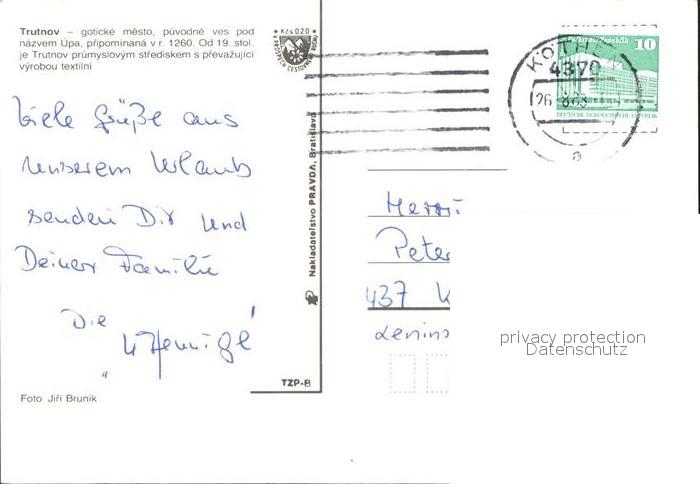 Trutnov – gotické město, původně ves pod
názvem Úpa, připomínaná v r. 1260. Od 19. stol.
je Trutnov průmyslovým střediskem s převažující
výrobou textilní
Kčs 0,20
Viele Grüße aus
unserem Urlaub
senden Dir und
Deiner Familie
Die
Foto Jiří Bruník
Nakladatelství PRAVDA, Bratislava
TZP-8
KÖTHE
4370
26
a
10
DEUTSCHE DEMOKRATISCHE REPUBLIK
Herrn
Peter
437 K
Lenins
privacy protection
Datenschutz